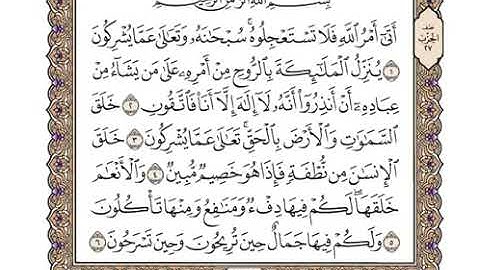 بِسْمِ اللَّهِ الرَّحْمَٰنِ الرَّحِيمِ
أَتَىٰ أَمْرُ اللَّهِ فَلَا تَسْتَعْجِلُوهُ ۚ سُبْحَانَهُ وَتَعَالَىٰ عَمَّا يُشْرِكُونَ
١ يُنَزِّلُ الْمَلَائِكَةَ بِالرُّوحِ مِنْ أَمْرِهِ عَلَىٰ مَن يَشَاءُ مِنْ
عِبَادِهِ أَنْ أَنذِرُوا أَنَّهُ لَا إِلَٰهَ إِلَّا أَنَا فَاتَّقُونِ ٢ خَلَقَ
السَّمَاوَاتِ وَالْأَرْضَ بِالْحَقِّ ۚ تَعَالَىٰ عَمَّا يُشْرِكُونَ ٣ خَلَقَ
الْإِنسَانَ مِن نُّطْفَةٍ فَإِذَا هُوَ خَصِيمٌ مُّبِينٌ ٤ وَالْأَنْعَامَ
خَلَقَهَا ۗ لَكُمْ فِيهَا دِفْءٌ وَمَنَافِعُ وَمِنْهَا تَأْكُلُونَ
٥ وَلَكُمْ فِيهَا جَمَالٌ حِينَ تُرِيحُونَ وَحِينَ تَسْرَحُونَ ٦
نصف
الحزب
٢٧